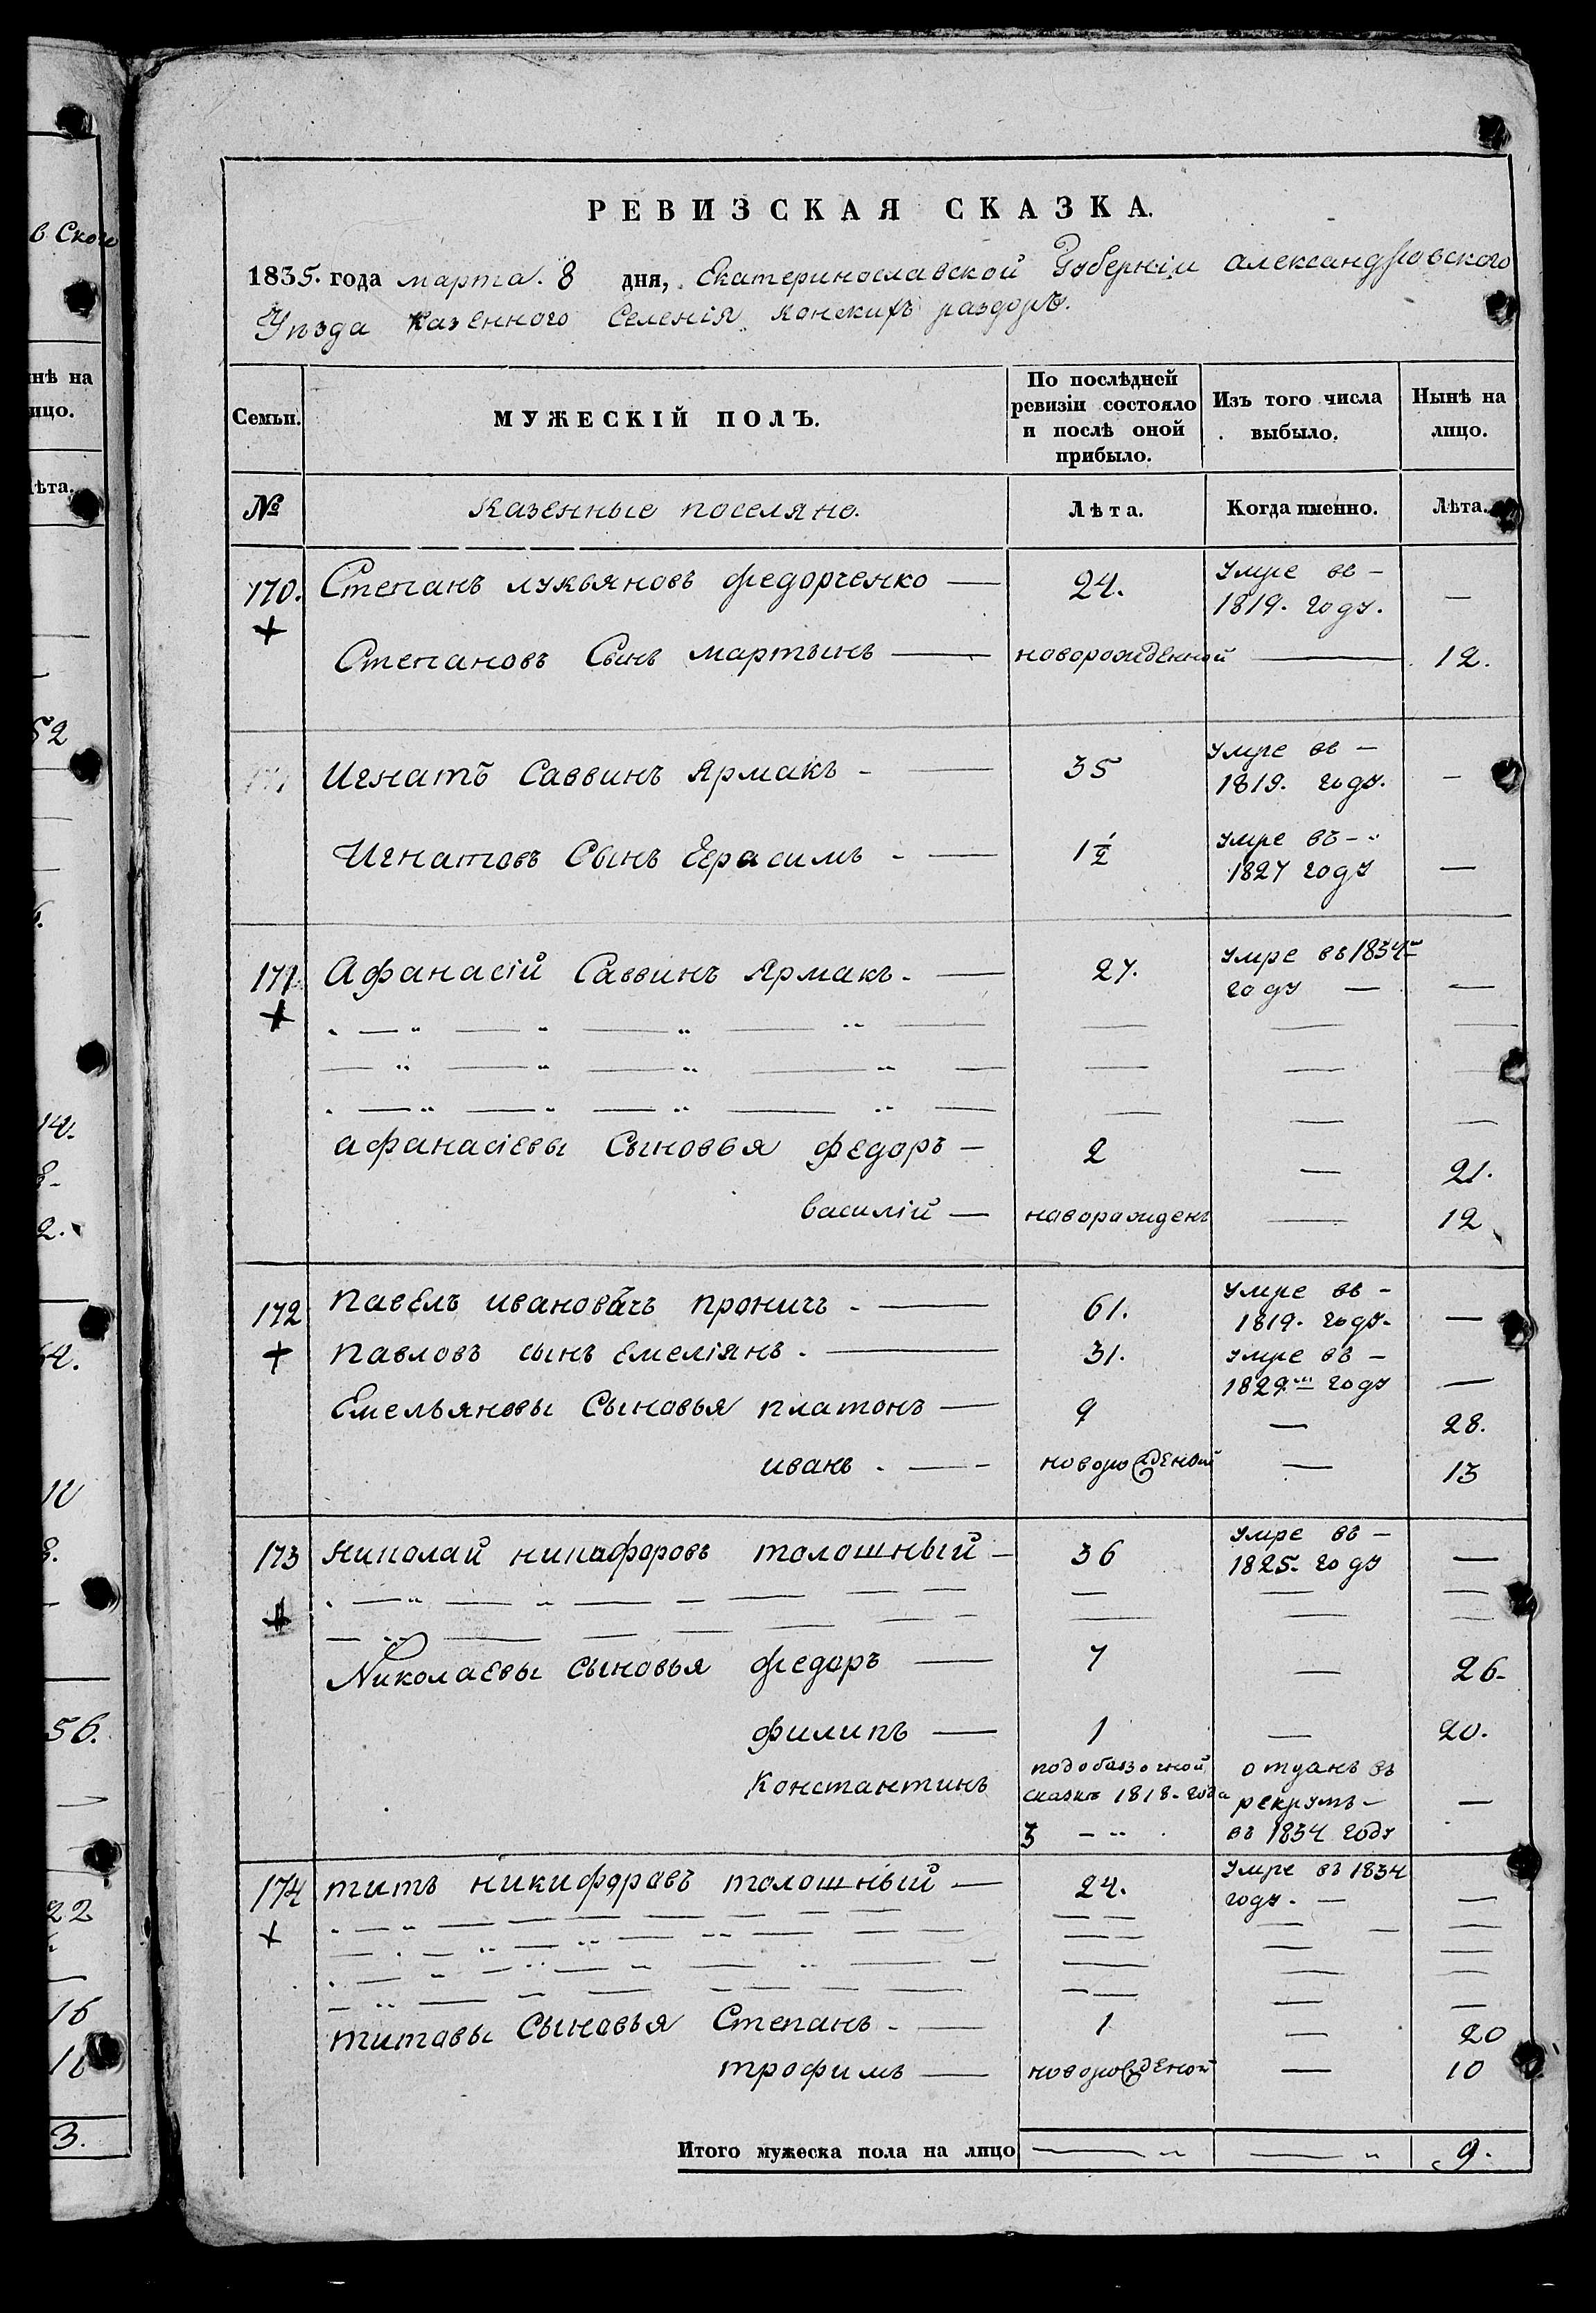 в Ского
инѣ на
ицо.
ѣта.
52
14.
8-
2.
10
8.
56.
22
16
3.
РЕВИЗСКАЯ СКАЗКА.
1835. года марта. 8 дня, Екатеринославской Губерніи александровского
Уѣзда Казенного Селенія конскихъ раздоръ.
Семьи. МУЖЕСКІЙ ПОЛЪ. По послѣдней ревизіи состояло и послѣ оной прибыло. Изъ того числа выбыло. Нынѣ на лицо.
№ Казенные поселяне. Лѣта. Когда именно. Лѣта.
170. Степанъ лукьяновъ федорченко — 24. умре въ — 1819. году. —
Степановъ Сынъ мартынъ — новорожденной — 12.
Игнатъ Саввинъ Ярмакъ - — 35 умре въ — 1819. году. —
Игнатовъ Сынъ Герасимъ - — 1 1/2 умре въ - 1827 году —
171 Афанасій Саввинъ Ярмакъ. — 27. умре въ 1834м году — —
афанасіевы Сыновья федоръ — 2 — 21.
василій — новорожденъ — 12
172 павелъ ивановичъ проничъ - — 61. умре въ - 1819. году. —
павловъ сынъ емеліянъ. — 31. умре въ — 1829.м году —
Емельяновы Сыновья платонъ — 9 — 28.
иванъ. — новорожденой — 13
173 николай никифоровъ толошный — 36 умре въ — 1825. году —
Николаевы сыновья федоръ — 7 — 26-
филипъ — 1 — 20.
Константинъ по добавочной сказке 1818. года 3 — отданъ въ рекруты — въ 1834 году —
174 титъ никифоровъ толошный — 24. умре въ 1834 году. — —
титовы Сыновья Степанъ. — 1 — 20
трофимъ — новорожденой — 10
Итого мужеска пола на лицо — — 9.